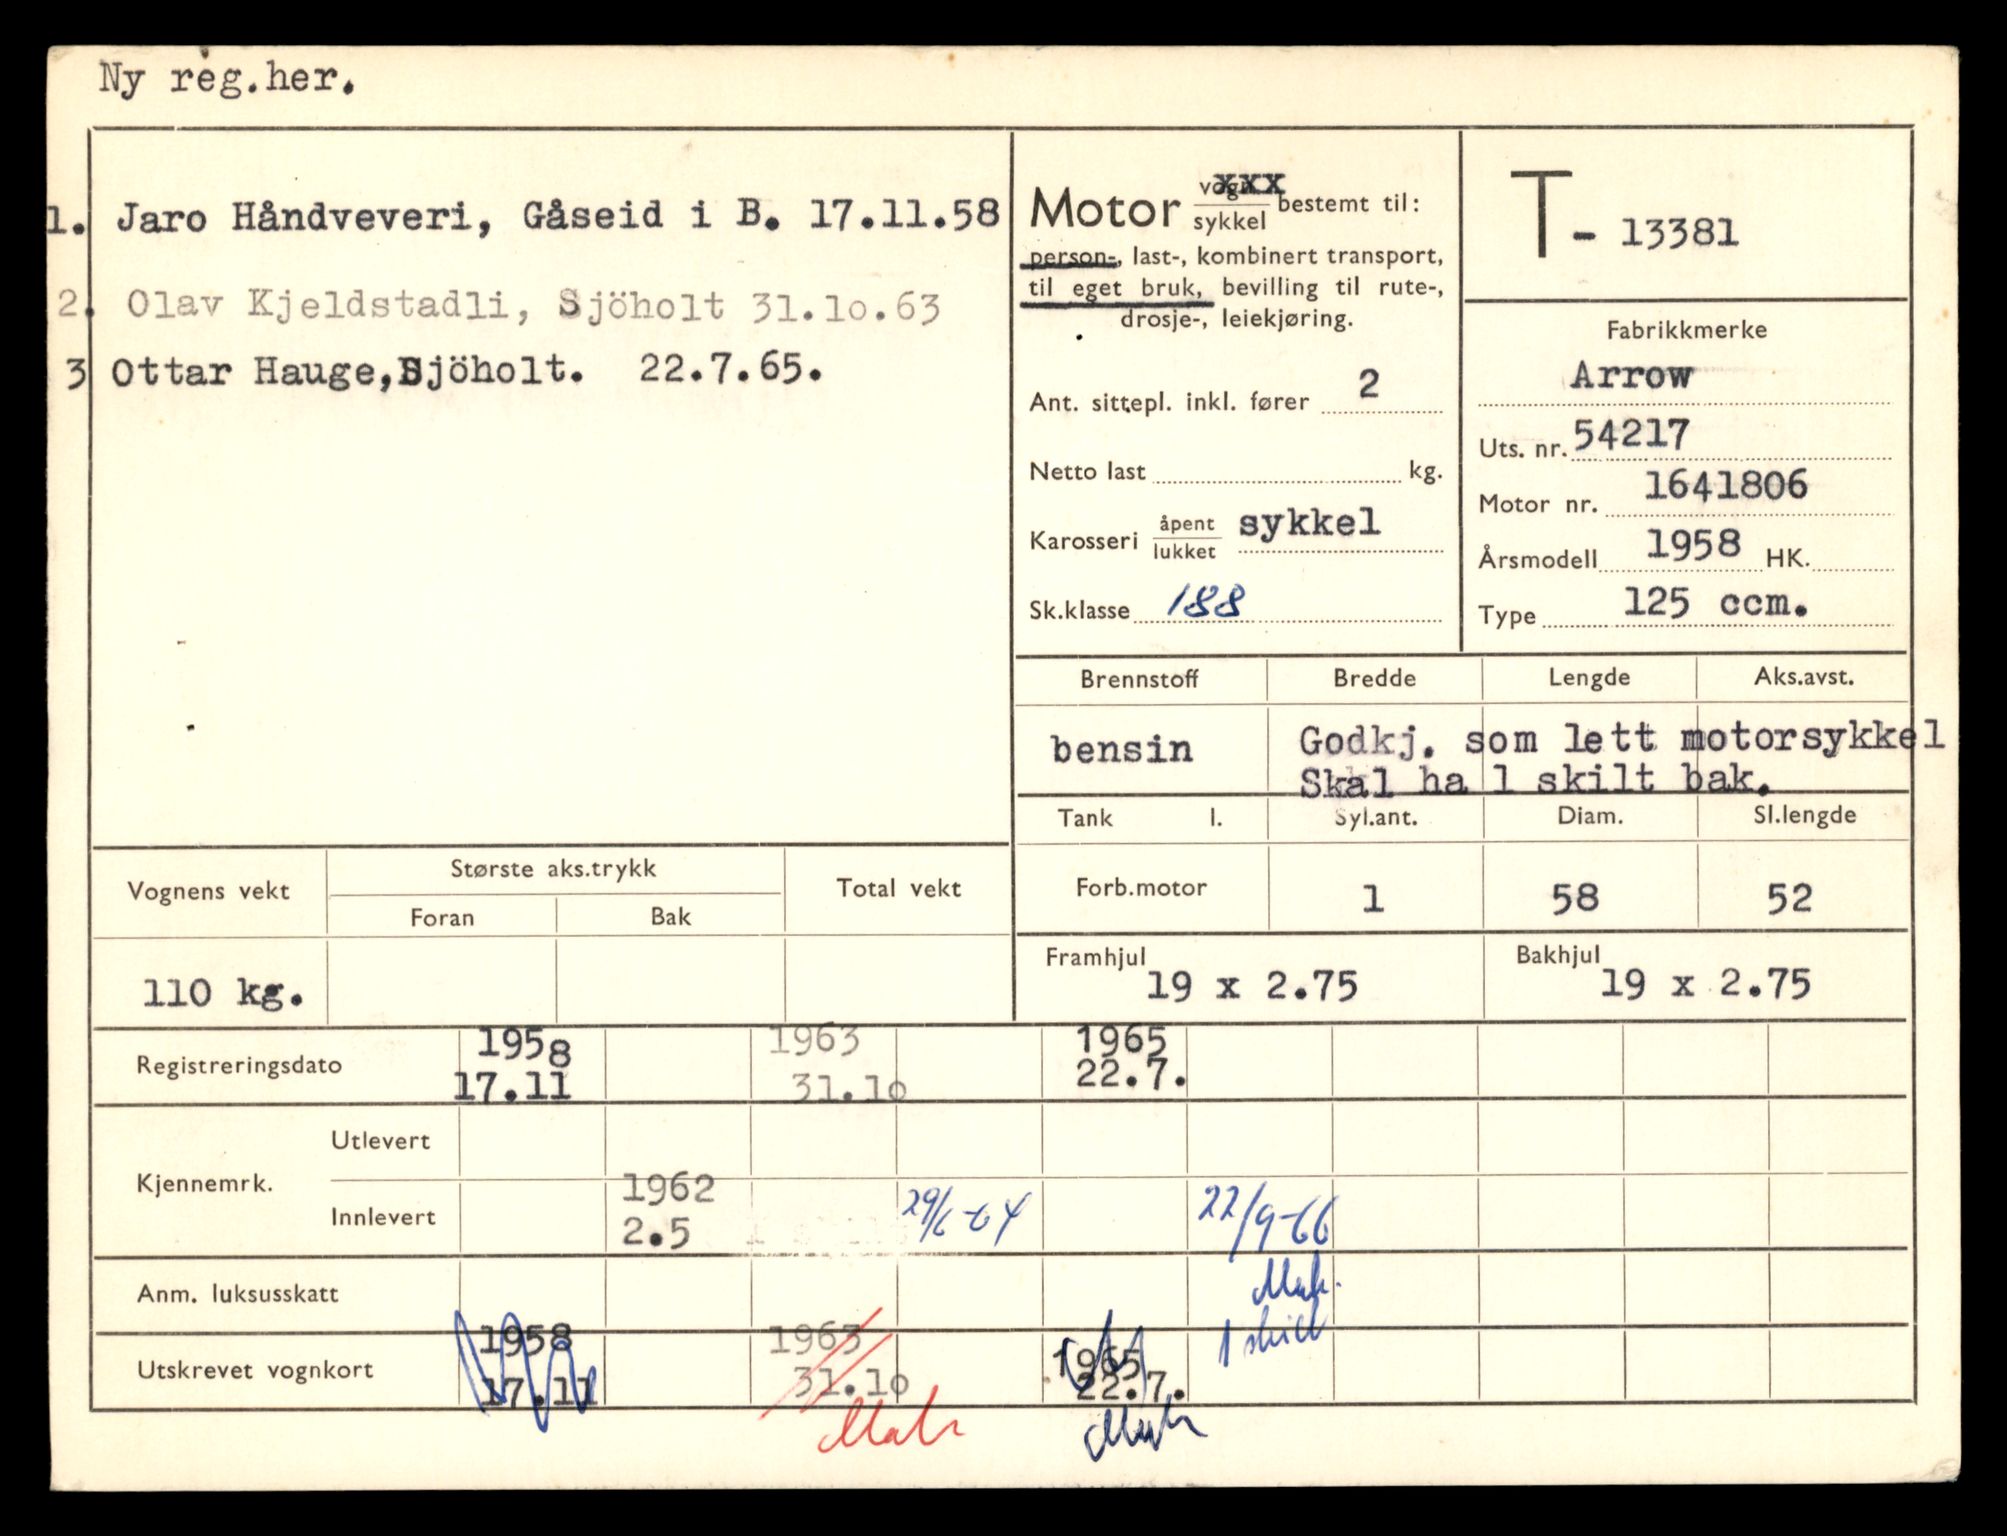 Ny reg.her.
1. Jaro Håndveveri, Gåseid i B. 17.11.58
2. Olav Kjeldstadli, Sjöholt 31.10.63
3 Ottar Hauge, Sjöholt. 22.7.65.
Motor vogn xxx
sykkel bestemt til:
person-, last-, kombinert transport,
til eget bruk, bevilling til rute-,
drosje-, leiekjøring.
Ant. sittepl. inkl. fører 2
Netto last kg.
Karosseri åpent lukket sykkel
Sk.klasse 188
T- 13381
Fabrikkmerke
Arrow
Uts. nr. 54217
Motor nr. 1641806
Årsmodell 1958 HK.
Type 125 ccm.
Brennstoff Bredde Lengde Aks.avst.
bensin Godkj. som lett motorsykkel
Skal ha 1 skilt bak.
Tank l. Syl.ant. Diam. Sl.lengde
Forb.motor 1 58 52
Framhjul 19 x 2.75 Bakhjul 19 x 2.75
Vognens vekt Største aks.trykk Total vekt
Foran Bak
110 kg.
Registreringsdato 1958 1963 1965
17.11 31.10 22.7.
Kjennemrk. Utlevert
Innlevert 1962 2.5 29/6-64 22/9-66
Anm. luksusskatt
1 skilt
Utskrevet vognkort 1958 1963 1965
17.11 31.10 22.7.